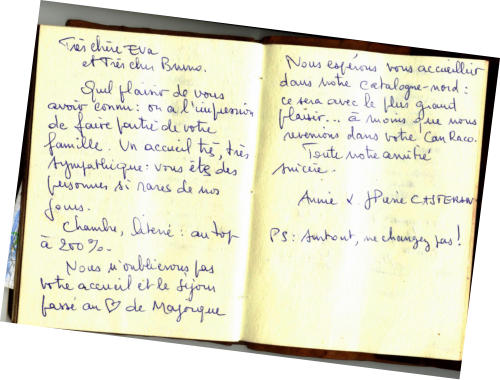 Très chère Eva
et Très cher Bruno.
Quel plaisir de vous
avoir connu : on a l'impression
de faire partie de votre
famille. Un accueil très, très
sympathique : vous êtes des
personnes si rares de nos
jours.
Chambre, literie : au top
à 200%.
Nous n'oublierons pas
votre accueil et le séjour
passé au ♡ de Majorque
Nous espérons vous accueillir
dans notre Catalogne-nord :
ce sera avec le plus grand
plaisir... à moins que nous
revenions dans votre Can Raco.
Toute notre amitié
sincère.
Annie & JPierre
PS : surtout, ne changez pas !